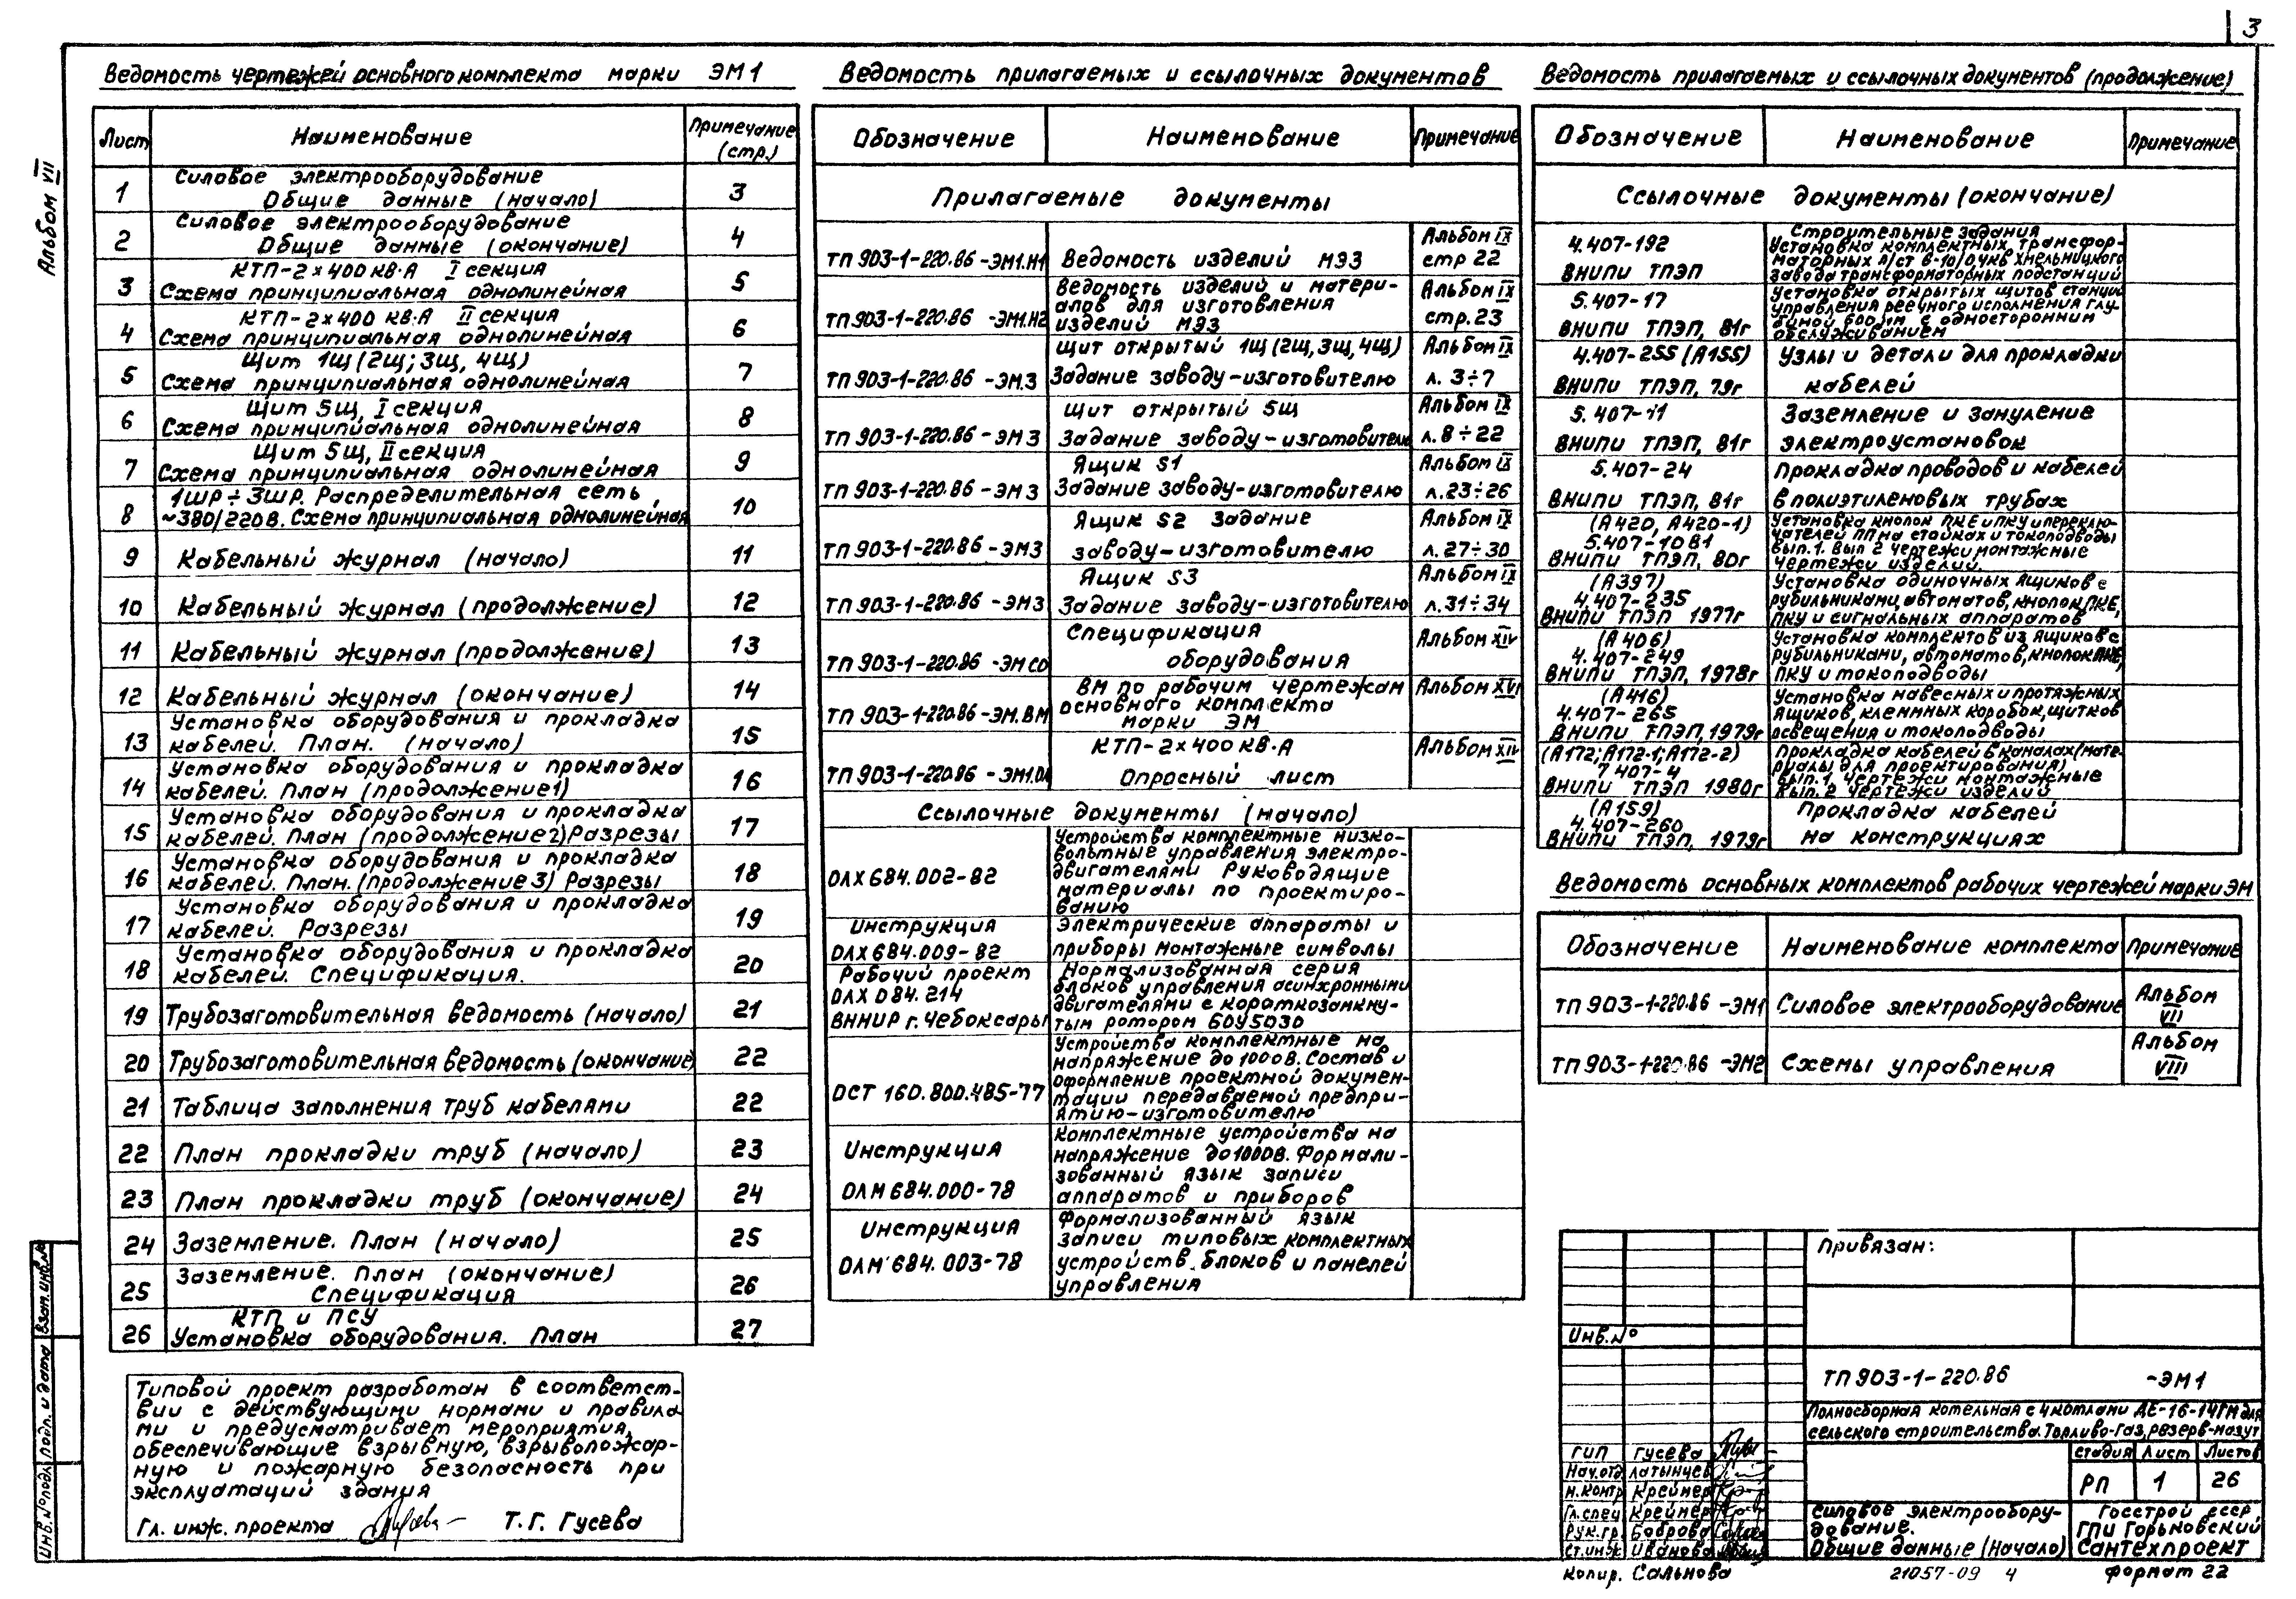 3
Альбом VII
Ведомость чертежей основного комплекта марки ЭМ1
Лист
Наименование
Примечание
(стр.)
1
Силовое электрооборудование
Общие данные (начало)
3
2
Силовое электрооборудование
Общие данные (окончание)
4
3
КТП-2×400 кВ·А I секция
Схема принципиальная однолинейная
5
4
КТП-2×400 кВ·А II секция
Схема принципиальная однолинейная
6
5
Щит 1Щ (2Щ; 3Щ, 4Щ)
Схема принципиальная однолинейная
7
6
Щит 5Щ, I секция
Схема принципиальная однолинейная
8
7
Щит 5Щ, II секция
Схема принципиальная однолинейная
9
8
1ШР÷3ШР. Распределительная сеть
~380/220В. Схема принципиальная однолинейная
10
9
Кабельный журнал (начало)
11
10
Кабельный журнал (продолжение)
12
11
Кабельный журнал (продолжение)
13
12
Кабельный журнал (окончание)
14
13
Установка оборудования и прокладка
кабелей. План. (начало)
15
14
Установка оборудования и прокладка
кабелей. План (продолжение1)
16
15
Установка оборудования и прокладка
кабелей. План (продолжение2) Разрезы
17
16
Установка оборудования и прокладка
кабелей. План. (продолжение 3) Разрезы
18
17
Установка оборудования и прокладка
кабелей. Разрезы
19
18
Установка оборудования и прокладка
кабелей. Спецификация.
20
19
Трубозаготовительная ведомость (начало)
21
20
Трубозаготовительная ведомость (окончание)
22
21
Таблица заполнения труб кабелями
22
22
План прокладки труб (начало)
23
23
План прокладки труб (окончание)
24
24
Заземление. План (начало)
25
25
Заземление. План (окончание)
Спецификация
26
26
КТП и ПСУ
Установка оборудования. План
27
Типовой проект разработан в соответст-
вии с действующими нормами и правила
ми и предусматривает мероприятия,
обеспечивающие взрывную, взрывопожар-
ную и пожарную безопасность при
эксплуатаций здания
Гл. инж. проекта
Т.Г. Гусева
Ведомость прилагаемых и ссылочных документов
Обозначение
Наименование
Примечание
Прилагаемые документы
ТП 903-1-220.86 -ЭМ1.Н1
Ведомость изделий МЭЗ
Альбом IX
стр 22
ТП 903-1-220.86 -ЭМ1.Н2
Ведомость изделий и матери-
алов для изготовления
изделий МЭЗ
Альбом IX
стр. 23
ТП 903-1-220.86 -ЭМ.З
Щит открытый 1Щ (2Щ, 3Щ, 4Щ)
Задание заводу-изготовителю
Альбом IX
л. 3÷7
ТП 903-1-220.86 -ЭМ З
Щит открытый 5Щ
Задание заводу-изготовителю
Альбом IX
л. 8÷22
ТП 903-1-220.86 -ЭМ З
Ящик S1
Задание заводу-изготовителю
Альбом IX
л. 23÷26
ТП 903-1-220.86 -ЭМЗ
Ящик S2 Задание
заводу-изготовителю
Альбом IX
л. 27÷30
ТП 903-1-220.86 -ЭМЗ
Ящик S3
Задание заводу-изготовителю
Альбом IX
л. 31÷34
ТП 903-1-220.86 -ЭМ.СО
Спецификация
оборудования
Альбом XIV
ТП 903-1-220.86 -ЭМ.ВМ
ВМ по рабочим чертежам
основного комплекта
марки ЭМ
Альбом XVI
ТП 903-1-220.86 -ЭМ1.ОЛ
КТП-2×400 кВ·А
Опросный лист
Альбом XIV
Ссылочные документы (начало)
ОЛХ 684.002-82
Устройства комплектные низко-
вольтные управления электро-
двигателями Руководящие
материалы по проектиро-
ванию
Инструкция
ОЛХ 684.009-82
Электрические аппараты и
приборы монтажные символы
Рабочий проект
ОЛХ 084.214
ВНИИР г. Чебоксары
Нормализованная серия
блоков управления асинхронными
двигателями с короткозамкну-
тым ротором БОУ5030
ОСТ 160.800.485-77
Устройства комплектные на
напряжение до 1000В. Состав и
оформление проектной докумен-
тации передаваемой предпри-
ятию-изготовителю
Инструкция
ОЛМ 684.000-78
Комплектные устройства на
напряжение до 1000В. Формали-
зованный язык записи
аппаратов и приборов
Инструкция
ОЛМ 684.003-78
Формализованный язык
записи типовых комплектных
устройств. блоков и панелей
управления
Ведомость прилагаемых и ссылочных документов (продолжение)
Обозначение
Наименование
Примечание
Ссылочные документы (окончание)
4.407-192
ВНИПИ ТПЭП
Строительные задания
Установка комплектных трансфор-
маторных п/ст 6-10/0,4кВ Хмельницкого
завода трансформаторных подстанций
5.407-17
ВНИПИ ТПЭП, 81г
Установка открытых щитов станций
управления реечного исполнения глу-
биной 600мм с односторонним
обслуживанием
4.407-255 (А155)
ВНИПИ ТПЭП, 79г
Узлы и детали для прокладки
кабелей
5.407-11
ВНИПИ ТПЭП, 81г
Заземление и зануление
электроустановок
5.407-24
ВНИПИ ТПЭП, 81г
Прокладка проводов и кабелей
в полиэтиленовых трубах
(А420, А420-1)
5.407-10В1
ВНИПИ ТПЭП, 80г
Установка кнопок ПКЕ и ПКУ и переклю-
чателей ПП на стойках и токоподводы
Вып.1. Вып 2 чертежи монтажные
Чертежи изделий.
(А397)
4.407-235
ВНИПИ ТПЭП 1977г
Установка одиночных ящиков с
рубильниками, автоматов, кнопок ПКЕ,
ПКУ и сигнальных аппаратов
(А406)
4.407-249
ВНИПИ ТПЭП, 1978г
Установка комплектов из ящиков с
рубильниками, автоматов, кнопок ПКЕ,
ПКУ и токоподводы
(А416)
4.407-265
ВНИПИ ТПЭП, 1979г
Установка навесных и протяжных
ящиков, клеммных коробок, щитков
освещения и токоподводы
(А172; А172-1; А172-2)
7.407-4
ВНИПИ ТПЭП 1980г
Прокладка кабелей в каналах (мате-
риалы для проектирования)
Вып. 1. Чертежи монтажные
Вып. 2 Чертежи изделий
(А159)
4.407-260
ВНИПИ ТПЭП, 1979г
Прокладка кабелей
на конструкциях
Ведомость основных комплектов рабочих чертежей марки ЭМ
Обозначение
Наименование комплекта
Примечание
ТП 903-1-220.86 -ЭМ1
Силовое электрооборудование
Альбом
VII
ТП 903-1-220.86 -ЭМ2
Схемы управления
Альбом
VIII
Привязан:
Инв. №
ТП 903-1-220.86 -ЭМ1
Полносборная котельная с 4 котлами ДЕ-16-14ГМ для
сельского строительства. Топливо-газ, резерв-мазут
ГИП Гусева
Нач. отд Латынцев
Н. контр Крейнер
Гл. спец Крейнер
Рук. гр. Боброва
Ст. инж Иванова
Стадия Лист Листов
РП 1 26
Силовое электрообору-
дование.
Общие данные (начало)
Госстрой СССР
ГПИ Горьковский
Сантехпроект
Копир. Сальнова
21057-09 4
Формат 22
Инв. № подл. Подп. и дата Взам. инв. №